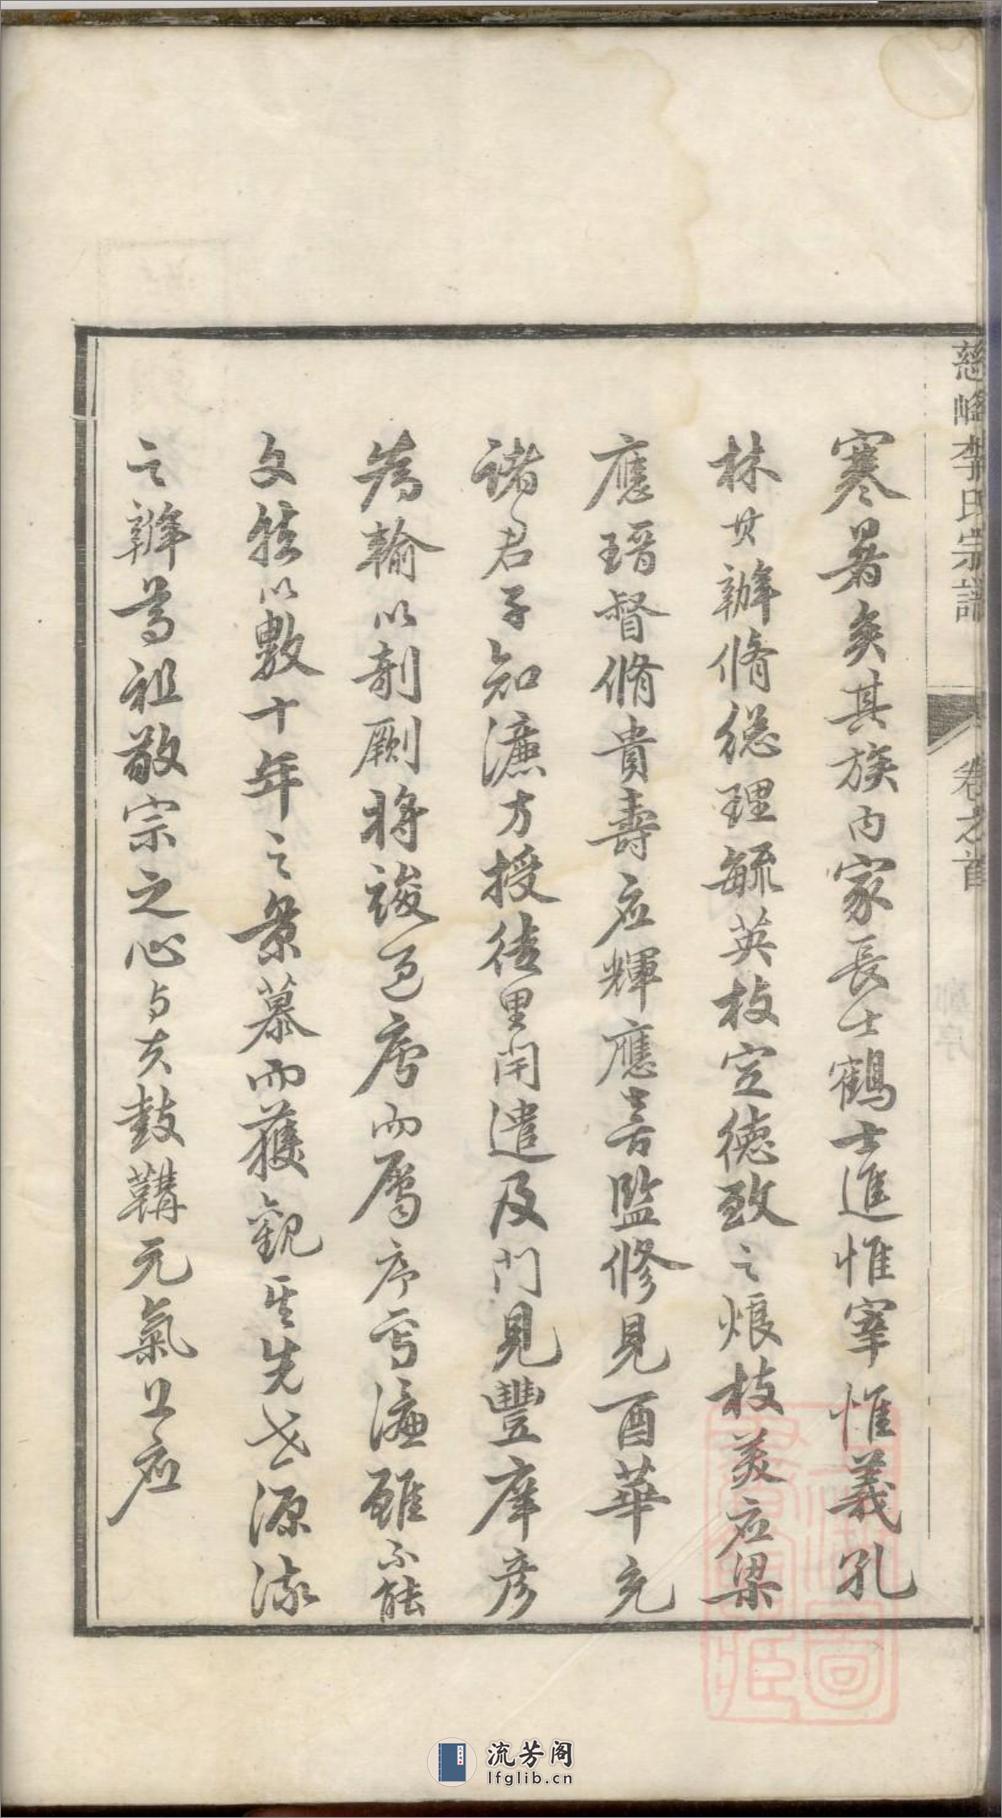 慈峰李氏宗譜 卷之首
寒暑矣其族內家長士鶴士進惟宰惟義孔
林其辦脩總理毓英枝定德致之烺枝美應梁
應瑨督脩貴壽应輝應善監修見酉華充
諸君子知濂方授徒里閈遣及門見豐庠彥
為輪以剞劂將竣邑序而屬序焉濂雖不能
文然以數十年之景慕而獲觀其先世源流
之辦尊祖敬宗之心與夫鼓鞴元氣上应
流芳阁
lfglib.cn